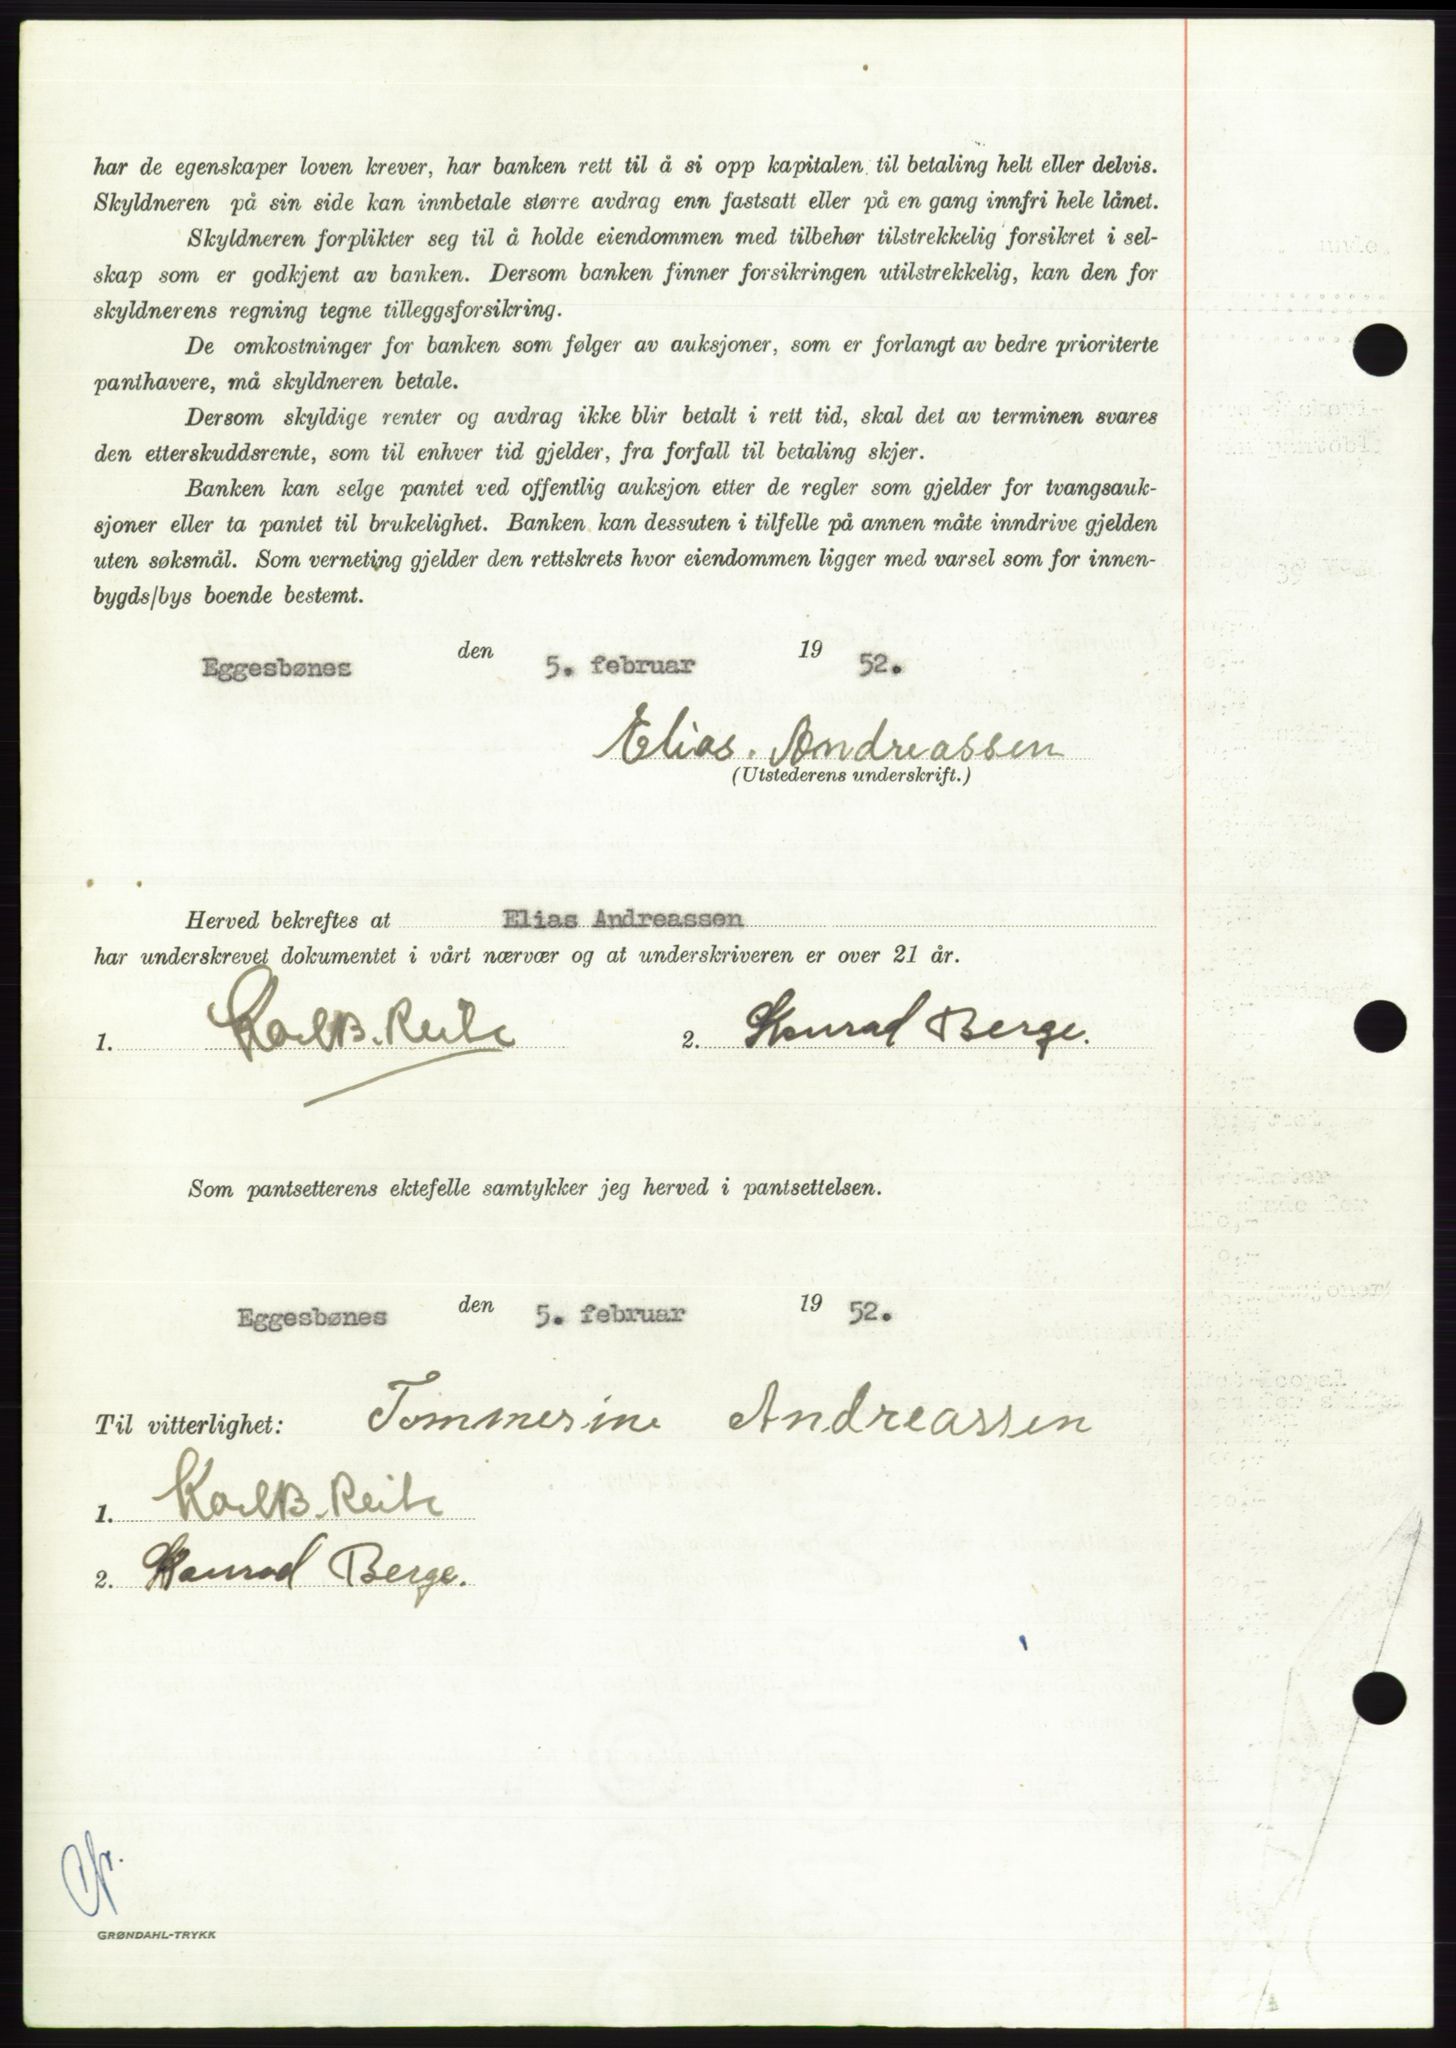 har de egenskaper loven krever, har banken rett til å si opp kapitalen til betaling helt eller delvis.
Skyldneren på sin side kan innbetale større avdrag enn fastsatt eller på en gang innfri hele lånet.
Skyldneren forplikter seg til å holde eiendommen med tilbehør tilstrekkelig forsikret i sel-
skap som er godkjent av banken. Dersom banken finner forsikringen utilstrekkelig, kan den for
skyldnerens regning tegne tilleggsforsikring.
De omkostninger for banken som følger av auksjoner, som er forlangt av bedre prioriterte
panthavere, må skyldneren betale.
Dersom skyldige renter og avdrag ikke blir betalt i rett tid, skal det av terminen svares
den etterskuddsrente, som til enhver tid gjelder, fra forfall til betaling skjer.
Banken kan selge pantet ved offentlig auksjon etter de regler som gjelder for tvangsauk-
sjoner eller ta pantet til brukelighet. Banken kan dessuten i tilfelle på annen måte inndrive gjelden
uten søksmål. Som verneting gjelder den rettskrets hvor eiendommen ligger med varsel som for innen-
bygds/bys boende bestemt.
Eggesbønes den 5. februar 19 52.
Elias. Andreassen
(Utstederens underskrift.)
Herved bekreftes at Elias Andreassen
har underskrevet dokumentet i vårt nærvær og at underskriveren er over 21 år.
1. Karl B. Reite 2. Konrad Berge.
Som pantsetterens ektefelle samtykker jeg herved i pantsettelsen.
Eggesbønes den 5. februar 19 52.
Til vitterlighet: Tommesine Andreassen
1. Karl B. Reite
2. Konrad Berge.
GRØNDAHL-TRYKK